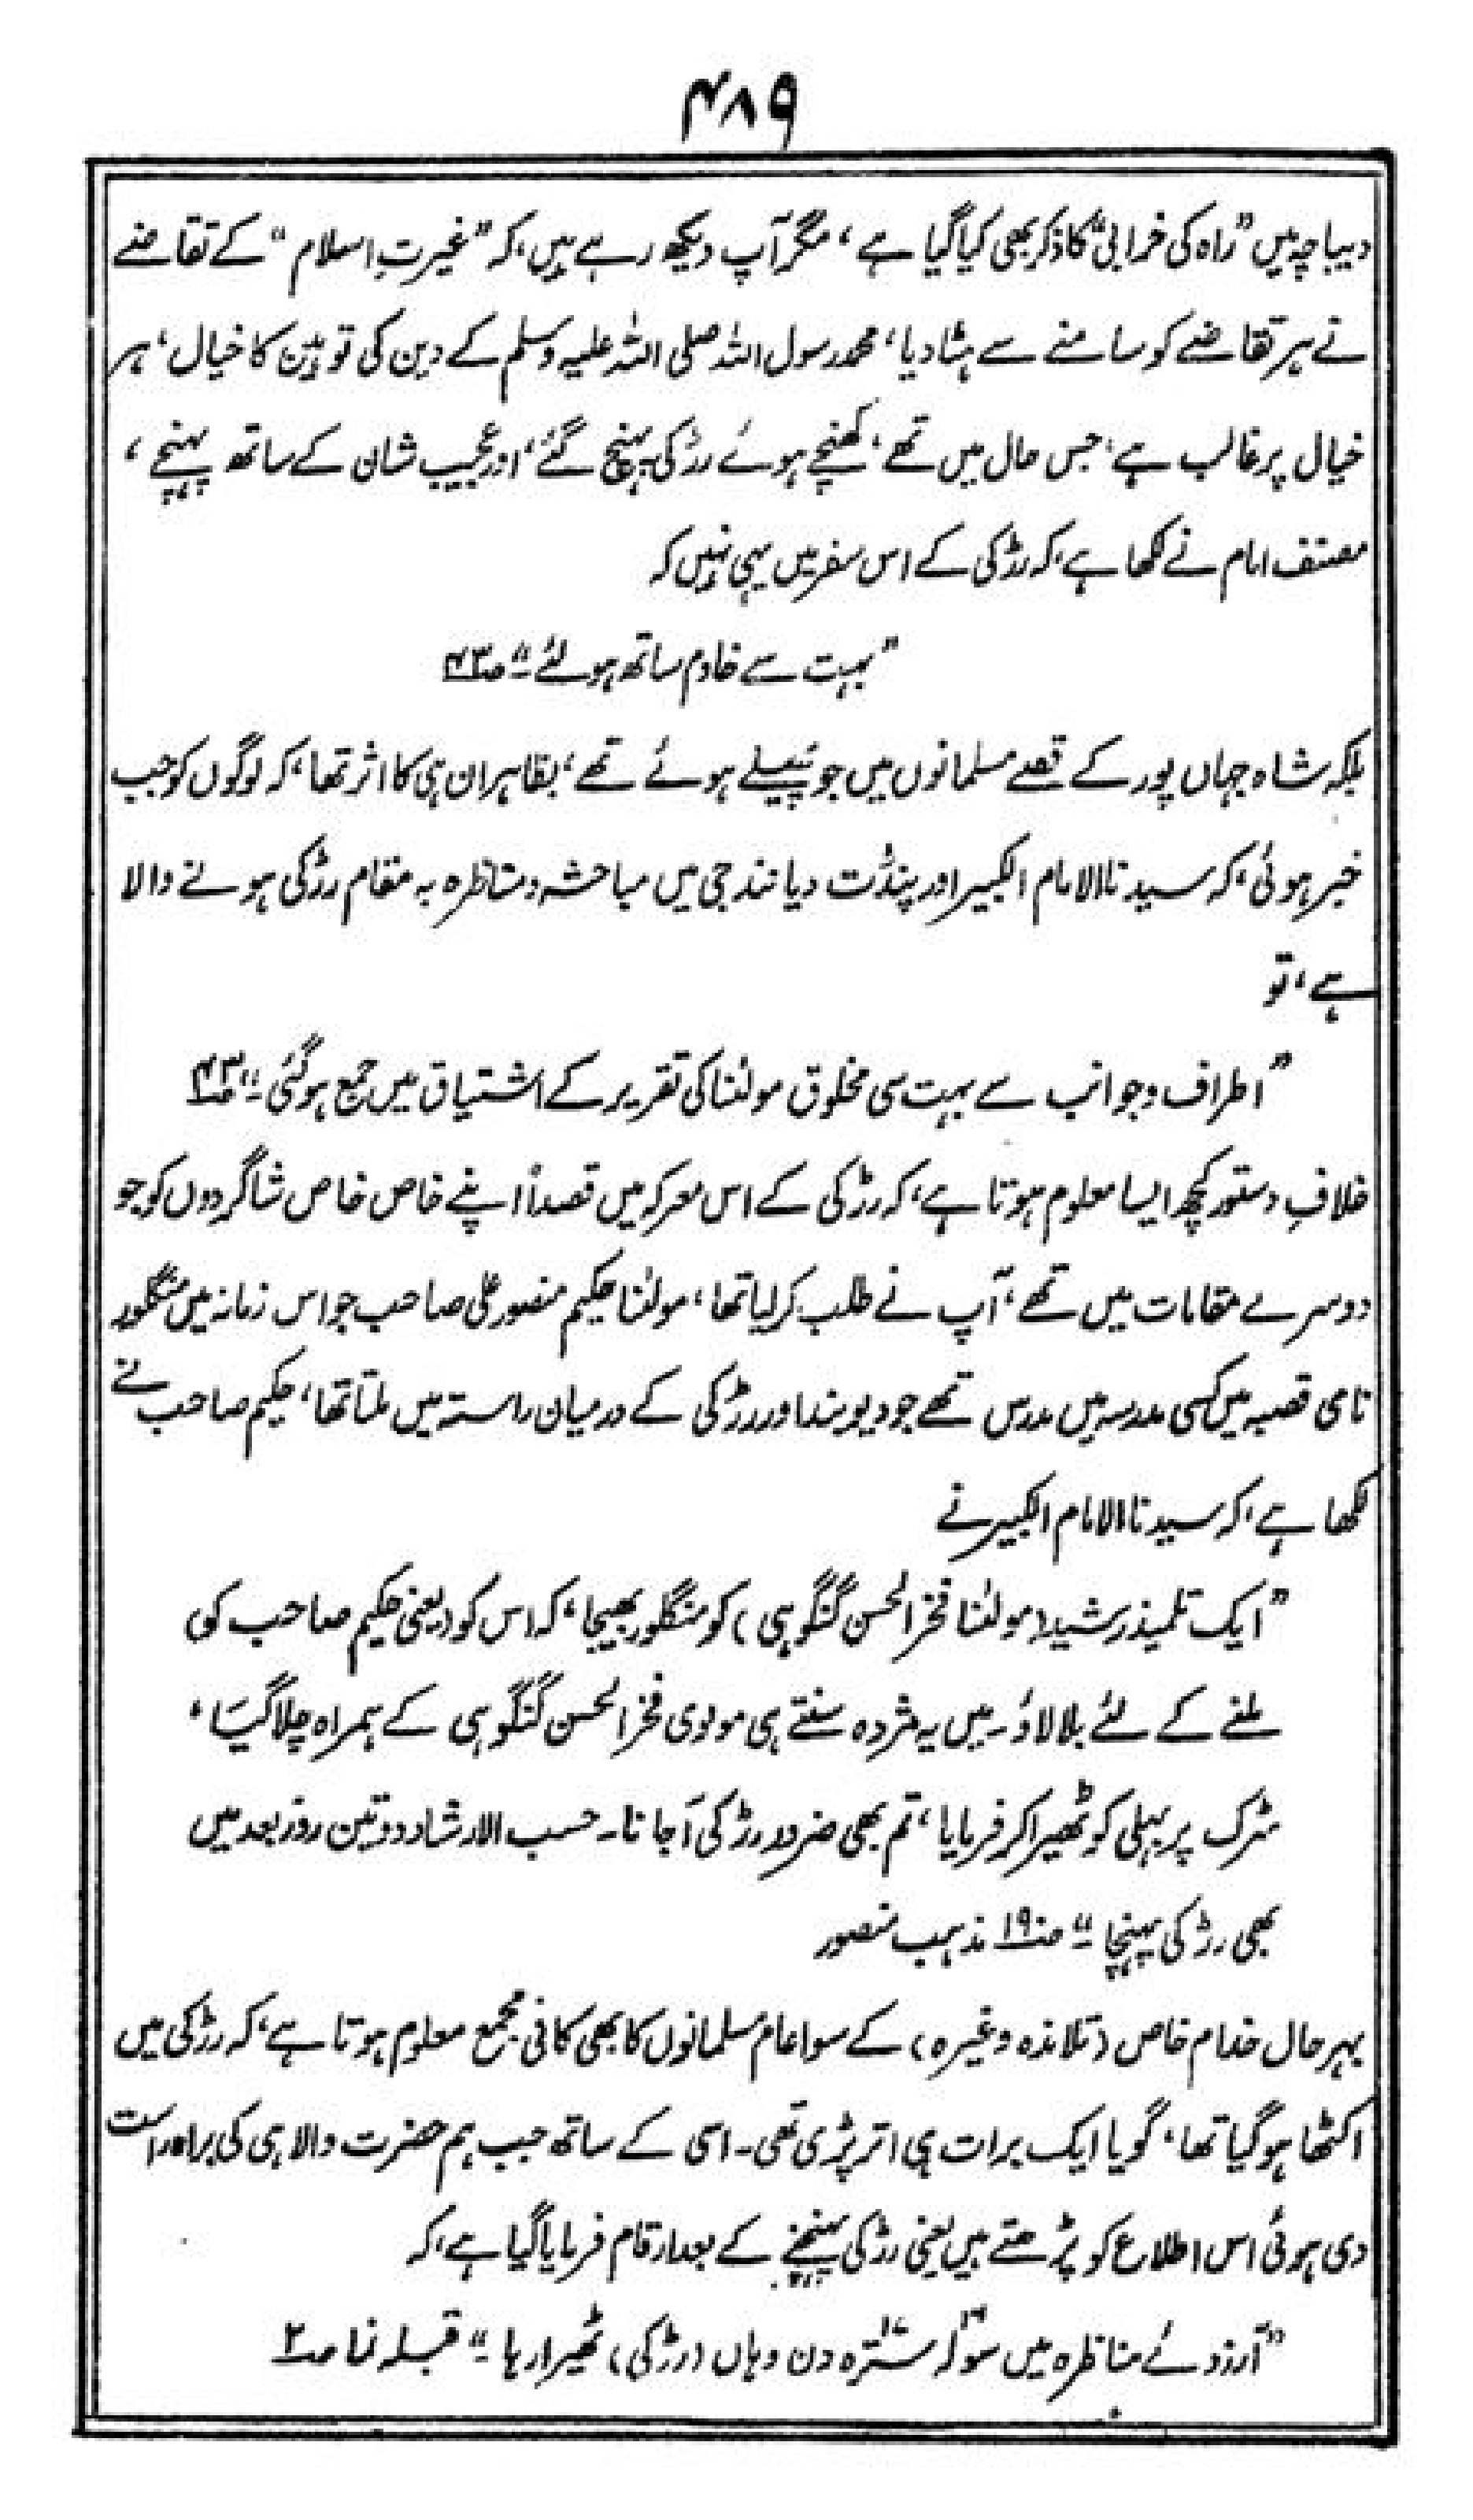 ۴۸۹
دیباچہ میں ”راہ کی خرابی“ کا ذکر بھی کیا گیا ہے، مگر آپ دیکھ رہے ہیں، کہ ”غیرتِ اسلام“ کے تقاضے
نے ہر تقاضے کو سامنے سے ہٹا دیا، محمد رسول اللہ صلی اللہ علیہ وسلم کے دین کی توہین کا خیال، ہر
خیال پر غالب ہے، جس حال میں تھے، کھنچے ہوئے رڑکی پہنچ گئے، اور عجیب شان کے ساتھ پہنچے،
مصنف امام نے لکھا ہے، کہ رڑکی کے اس سفر میں یہی نہیں کہ
”بہت سے خادم ساتھ ہولئے“ ص۴۳
بلکہ شاہ جہاں پور کے قصے مسلمانوں میں جو پھیلے ہوئے تھے، بظاہر ان ہی کا اثر تھا، کہ لوگوں کو جب
خبر ہوئی، کہ سیدنا الامام الکبیر اور پنڈت دیانند جی میں مباحثہ و مناظرہ بہ مقام رڑکی ہونے والا
ہے، تو
”اطراف و جوانب سے بہت سی مخلوق مولٰنا کی تقریر کے اشتیاق میں جمع ہوگئی۔“ ص۴۳
خلافِ دستور کچھ ایسا معلوم ہوتا ہے، کہ رڑکی کے اس معرکہ میں قصداً اپنے خاص خاص شاگردوں کو جو
دوسرے مقامات میں تھے، آپ نے طلب کرلیا تھا، مولٰنا حکیم منصور علی صاحب جو اس زمانہ میں منگلور
نامی قصبہ میں کسی مدرسہ میں مدرس تھے جو دیوبند اور رڑکی کے درمیان راستہ میں ملتا تھا، حکیم صاحب نے
لکھا ہے، کہ سیدنا الامام الکبیر نے
”ایک تلمیذ رشید (مولٰنا فخر الحسن گنگوہی) کو منگلور بھیجا، کہ اس کو (یعنی حکیم صاحب کو)
ملنے کے لئے بلا لاؤ۔ میں یہ مژدہ سنتے ہی مولوی فخر الحسن گنگوہی کے ہمراہ چلا گیا،
سڑک پر بہلی کو ٹھیرا کر فرمایا، تم بھی ضرور رڑکی آجانا۔ حسب الارشاد دو تین روز بعد میں
بھی رڑکی پہنچا“ ص۱۹۰ مذہب منصور
بہرحال خدام خاص (تلامذہ وغیرہ) کے سوا عام مسلمانوں کا بھی کافی مجمع معلوم ہوتا ہے، کہ رڑکی میں
اکٹھا ہوگیا تھا، گویا ایک برات ہی اتر پڑی تھی۔ اسی کے ساتھ جب ہم حضرت والا ہی کی براہ راست
دی ہوئی اس اطلاع کو پڑھتے ہیں یعنی رڑکی پہنچنے کے بعد ارقام فرمایا گیا ہے، کہ
”آرزوئے مناظرہ میں سولہ سترہ دن وہاں (رڑکی) ٹھیرا رہا۔“ قبلہ نما ص۲